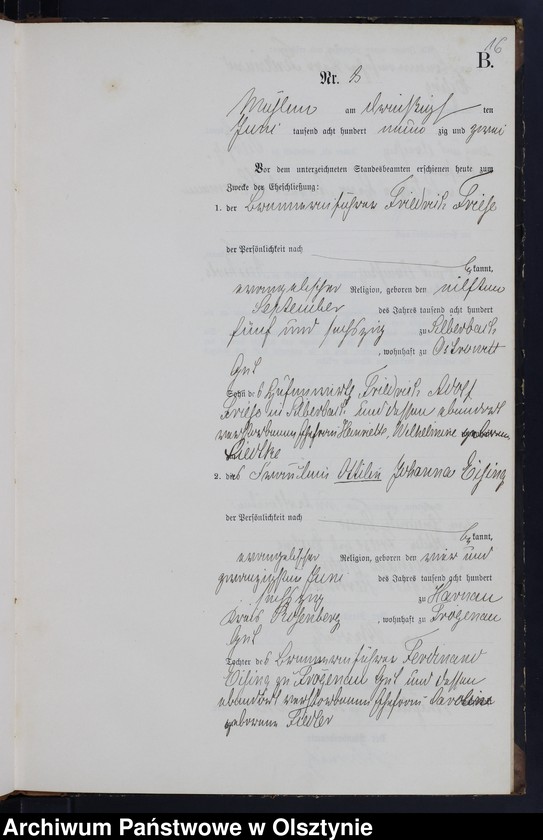 16
B.
Nr. 8
Mühlen am dreißigsten
Juni tausend acht hundert neunzig und zwei
Vor dem unterzeichneten Standesbeamten erschienen heute zum
Zwecke der Eheschließung:
1. der Brennereiführer Friedrich Friese
der Persönlichkeit nach
bekannt,
evangelischer Religion, geboren den elften
September des Jahres tausend acht hundert
fünf und sechszig zu Silberbach
, wohnhaft zu Ostrowitt
Gut
Sohn des Hufenwirts Friedrich Adolf
Friese in Silberbach und dessen ebendort
verstorbenen Ehefrau Henriette, Wilhelmine geborenen
Liedtke
2. das Fräulein Ottilie Johanna Eising
der Persönlichkeit nach
bekannt,
evangelischer Religion, geboren den vier und
zwanzigsten Juni des Jahres tausend acht hundert
sechszig zu Harnau
Kreis Rosenberg , wohnhaft zu Frögenau
Gut
Tochter des Brennereiführer Ferdinand
Eising zu Frögenau Gut und dessen
ebendort verstorbenen Ehefrau Caroline
geborene Fiedler
Archiwum Państwowe w Olsztynie